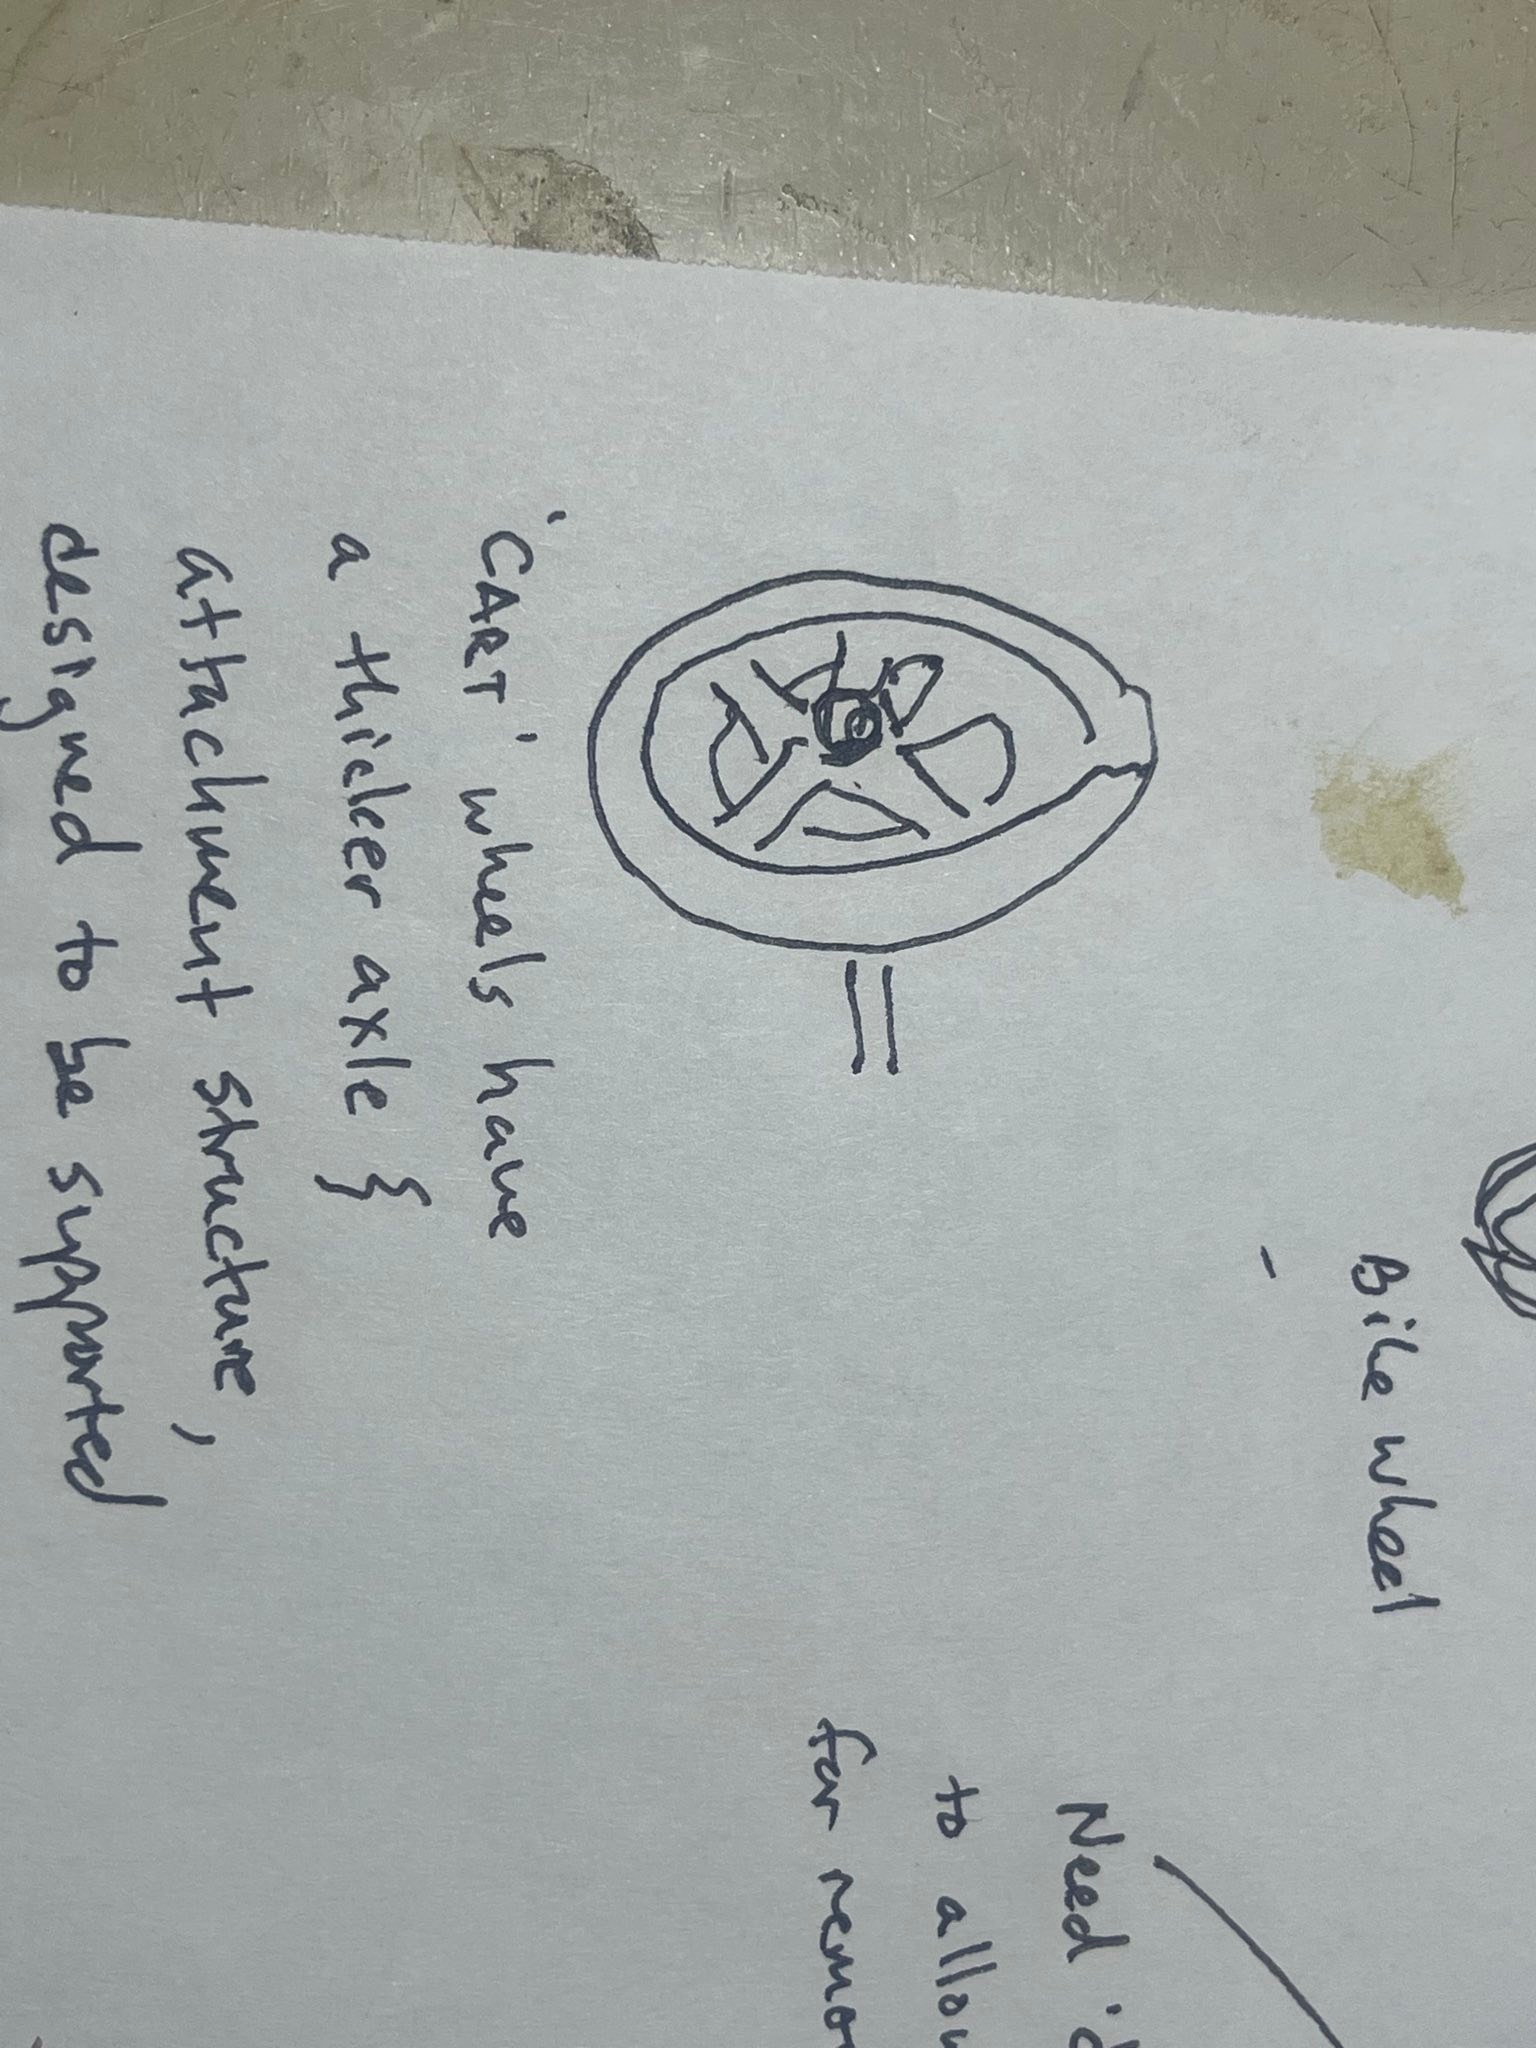 Bike wheel
-
Need 'd
to allow
for remo
'CART' wheels have
a thicker axle &
attachment structure,
designed to be supported